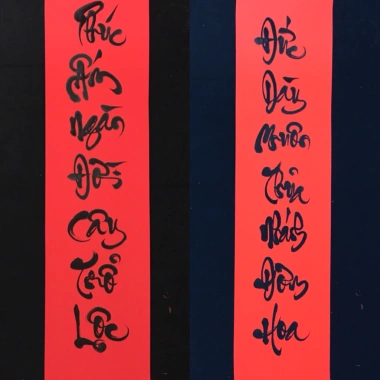 Phúc
Ấm
Ngàn
Đời
Cây
Trổ
Lộc
Đức
Dày
Muôn
Thủa
Nhánh
Đơm
Hoa